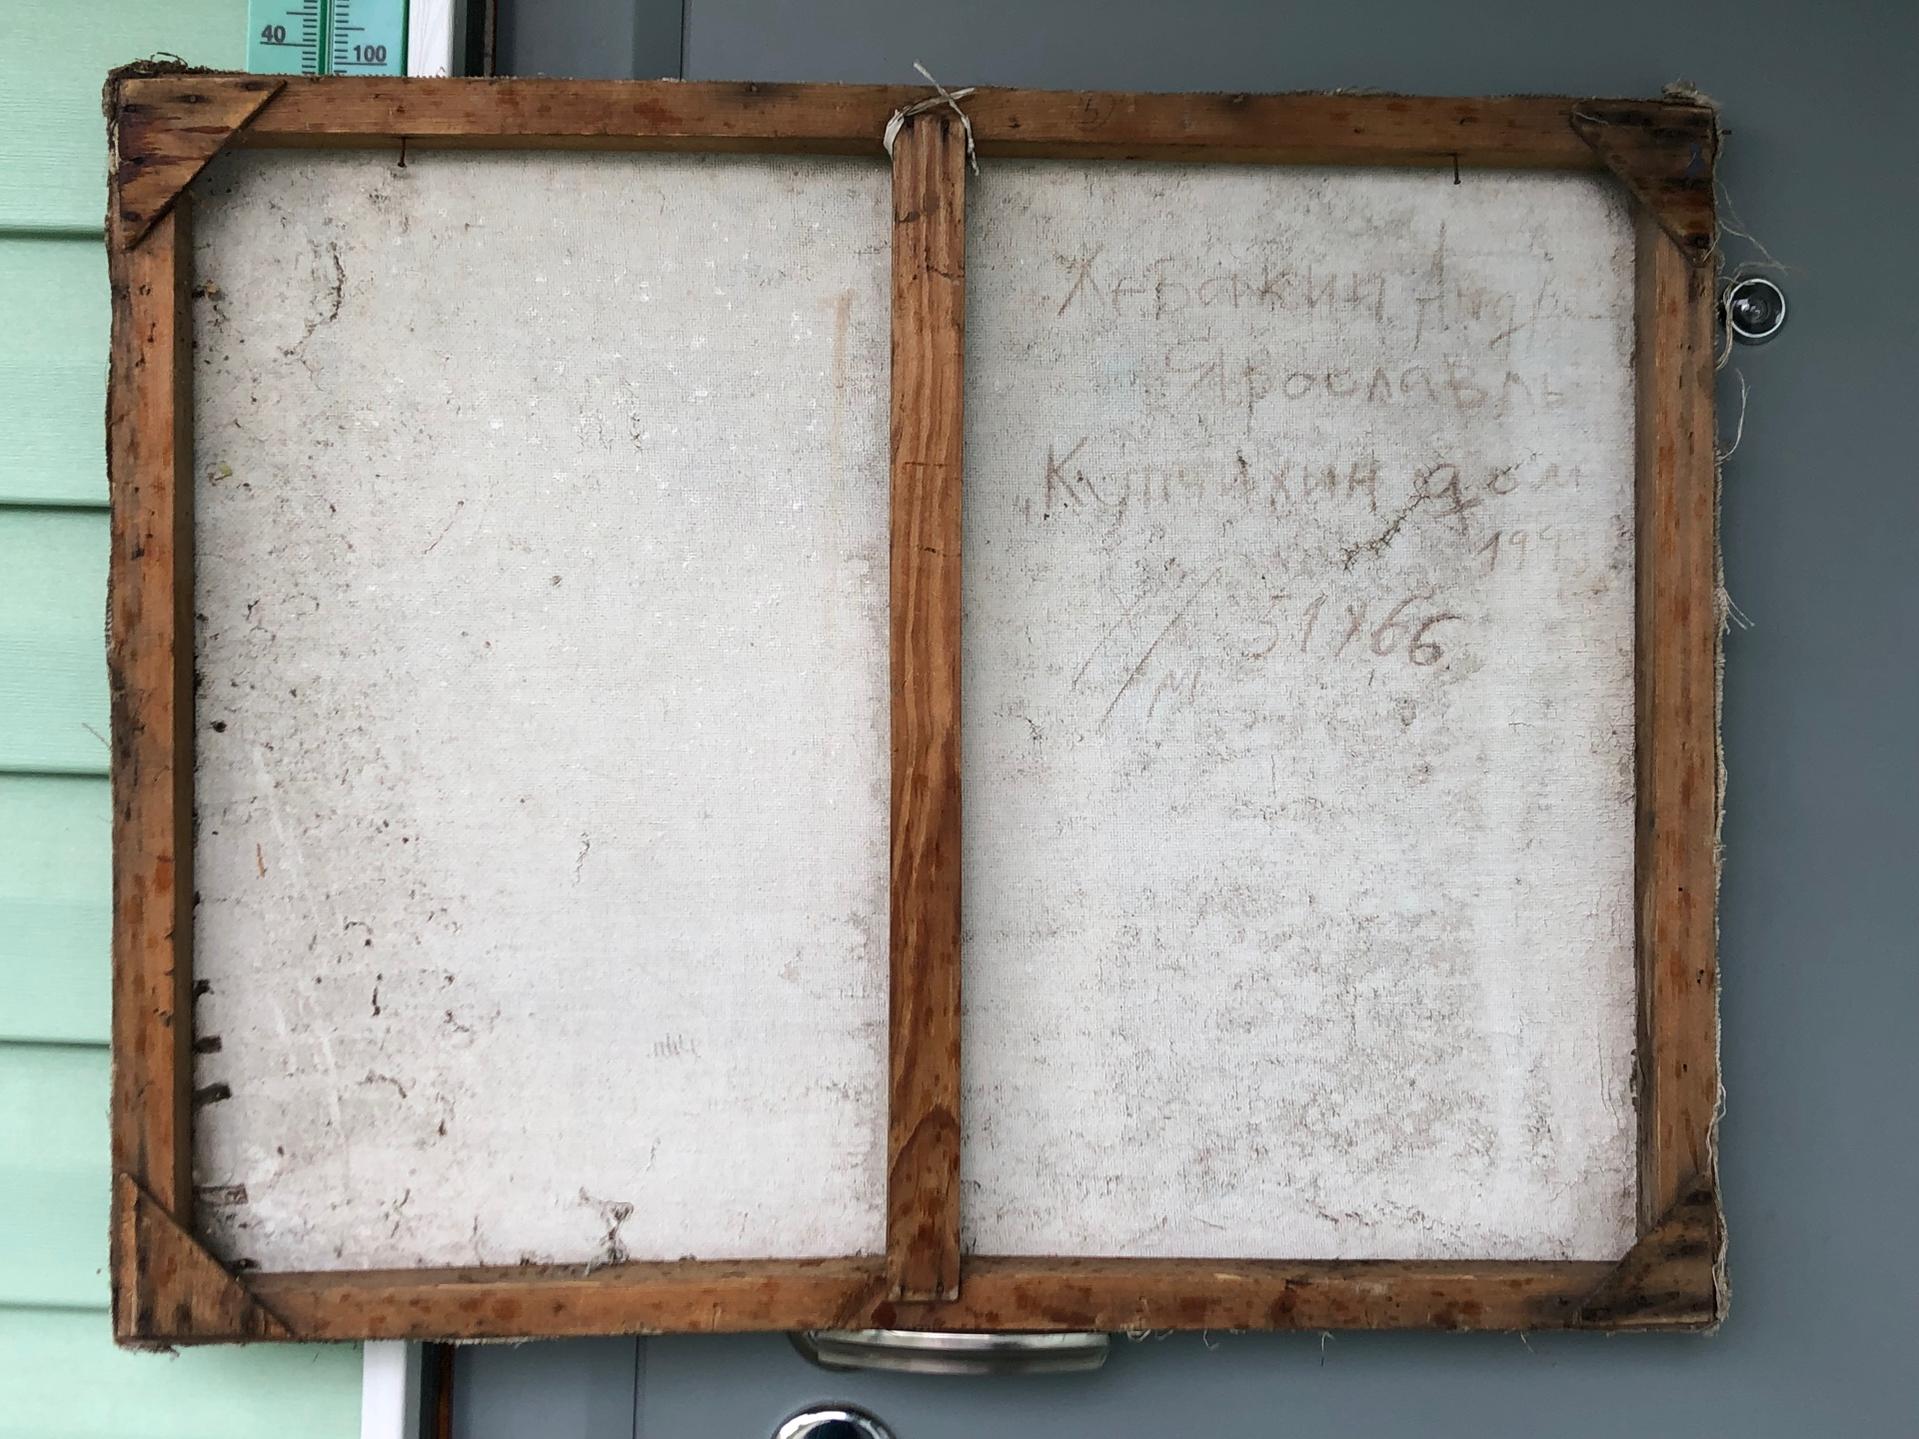 40
100
Хебакин Андре
Ярославль
"Купчихин дом
199
51х66